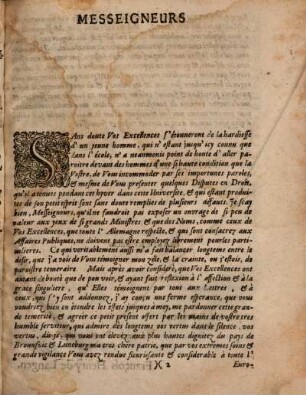 MESSEIGNEURS
SAns doute Vos Excellences s'étonneront de la hardiesse
d'un jeune homme, qui n'estant jusqu'icy connu que
dans l'école, n'a neanmoins point de honte d'aller paroitre
devant des hommes d'une si haute condition que la
Vostre, de Vous incommoder par ses importunes paroles,
& mesme de Vous presenter quelques Disputes en Droit,
qu'il a tenues pendant cet hyver dans cette Université, & qui estant produites
de son petit esprit sont sans doute remplies de plusieurs defauts. Je sçay
bien, Messeigneurs, qu'il ne faudroit pas exposer un ouvrage de si peu de
valeur aux yeux de si grands Ministres & que des Noms, comme ceux de
Vos Excellences, que toute l'Allemagne respecte, & qui sont consacrez aux
Affaires Publiques, ne doivent pas estre employez librement pour les particulieres.
Ce qui veritablement aussi m'a fait balancer longtems entre le
desir, que j'avois de Vous témoigner mon zéle, & la crainte, ou j'estois, de
paroistre temeraire. Mais aprés avoir consideré, que Vos Excellences ont
autant de bonté que de pouvoir, & ayant fait reflexion à l'affection & à la
grace singuliere, qu'Elles témoignent par tout aux Lettres, & à
ceux, qui s'y sont addonnez, j'ay conceu une ferme esperance, que vous
voudrez bien en étendre les effets jusques à moy, me pardonner cette grande
temerité, & agreer ce petit present offert par les mains de vostre tres
humble serviteur, qui admire dès longtems vos vertus dans le silence, vos
vertus, dis-je, qui vous ont élevez aux plus hautes dignitez du pays de
Brounsvic & Luneburg ma tres chére patrie, que par vos extremes soins &
grande vigilance Vous avez rendue fleurissante & considerable à toute l'
)( 2 Euro-
François Henry de Langen.